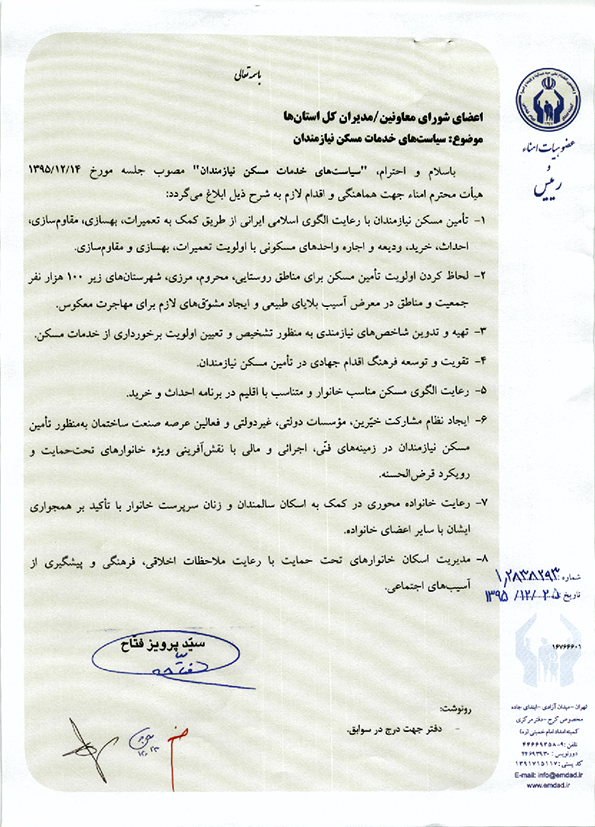 باسمه تعالی
عضو هیات امناء
و
رییس
اعضای شورای معاونین/مدیران کل استان‌ها
موضوع: سیاست‌های خدمات مسکن نیازمندان
باسلام و احترام، "سیاست‌های خدمات مسکن نیازمندان" مصوب جلسه مورخ ۱۳۹۵/۱۲/۱۴
هیأت محترم امناء جهت هماهنگی و اقدام لازم به شرح ذیل ابلاغ می‌گردد:
۱- تأمین مسکن نیازمندان با رعایت الگوی اسلامی ایرانی از طریق کمک به تعمیرات، بهسازی، مقاوم‌سازی،
احداث، خرید، ودیعه و اجاره واحدهای مسکونی با اولویت تعمیرات، بهسازی و مقاوم‌سازی.
۲- لحاظ کردن اولویت تأمین مسکن برای مناطق روستایی، محروم، مرزی، شهرستان‌های زیر ۱۰۰ هزار نفر
جمعیت و مناطق در معرض آسیب بلایای طبیعی و ایجاد مشوّق‌های لازم برای مهاجرت معکوس.
۳- تهیه و تدوین شاخص‌های نیازمندی به منظور تشخیص و تعیین اولویت برخورداری از خدمات مسکن.
۴- تقویت و توسعه فرهنگ اقدام جهادی در تأمین مسکن نیازمندان.
۵- رعایت الگوی مسکن مناسب خانوار و متناسب با اقلیم در برنامه احداث و خرید.
۶- ایجاد نظام مشارکت خیّرین، مؤسسات دولتی، غیردولتی و فعالین عرصه صنعت ساختمان به‌منظور تأمین
مسکن نیازمندان در زمینه‌های فنّی، اجرائی و مالی با نقش‌آفرینی ویژه خانوارهای تحت‌حمایت و
رویکرد قرض‌الحسنه.
۷- رعایت خانواده محوری در کمک به اسکان سالمندان و زنان سرپرست خانوار با تأکید بر همجواری
ایشان با سایر اعضای خانواده.
۸- مدیریت اسکان خانوارهای تحت حمایت با رعایت ملاحظات اخلاقی، فرهنگی و پیشگیری از
آسیب‌های اجتماعی.
شماره: ۱٫۲۸۳۸۲۹۳
تاریخ: ۱۳۹۵/۱۲/۲۵
سیّد پرویز فتاح
۱۶۷۶۶۶۰۱
رونوشت:
- دفتر جهت درج در سوابق.
تهران-میدان آزادی-ابتدای جاده
مخصوص کرج-دفتر مرکزی
کمیته امداد امام خمینی (ره)
تلفن: ۹-۴۴۶۶۹۲۵۸
دورنویس: ۴۴۶۹۳۹۳۰
کد پستی: ۱۳۹۱۷۱۵۱۱۷
E-mail: info@emdad.ir
www.emdad.ir